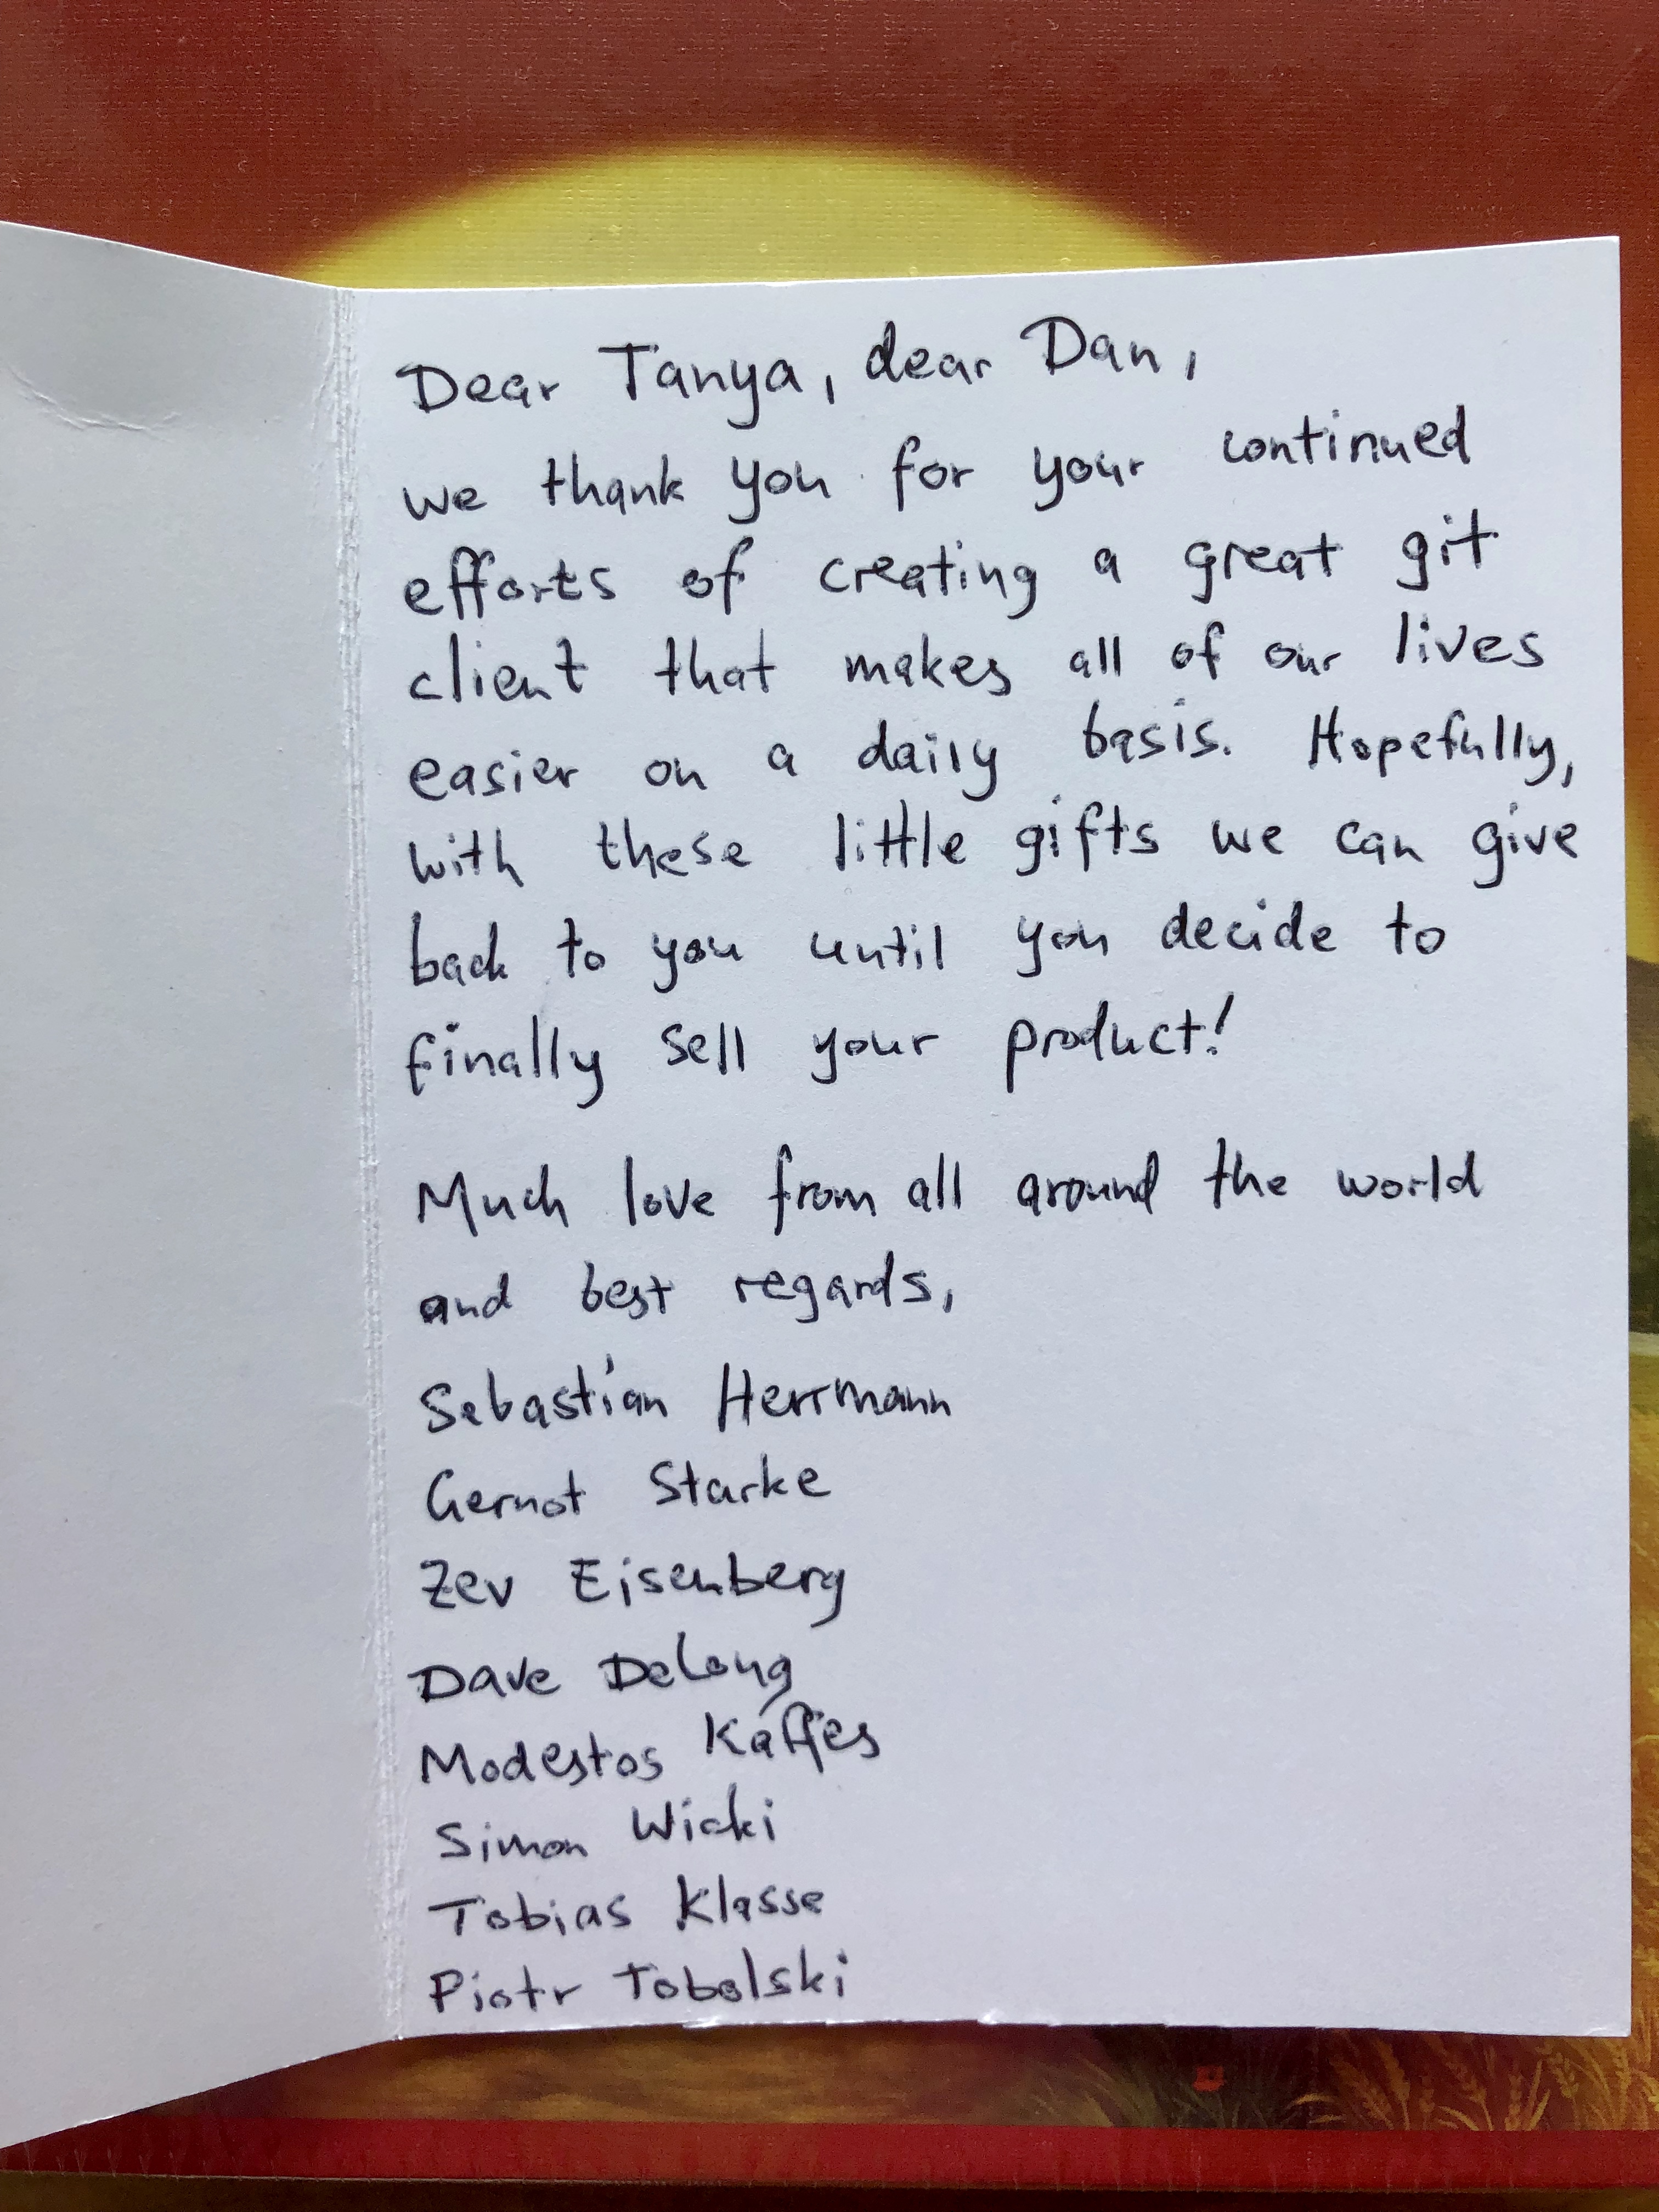 Dear Tanya, dear Dan,
we thank you for your continued
efforts of creating a great git
client that makes all of our lives
easier on a daily basis. Hopefully,
with these little gifts we can give
back to you until you decide to
finally sell your product!
Much love from all around the world
and best regards,
Sebastian Herrmann
Gernot Starke
Zev Eisenberg
Dave DeLong
Modestos
Simon Wicki
Tobias Klasse
Piotr Tobolski